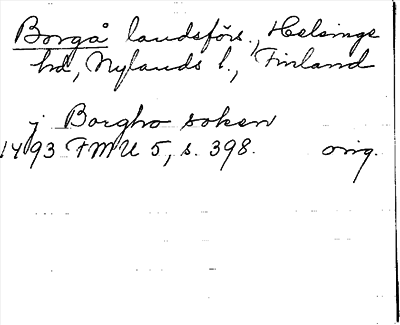 Borgå landsförs., Helsinge
hd, Nylands l., Finland
j Borgho soken
1493 FMU 5, s. 398. orig.